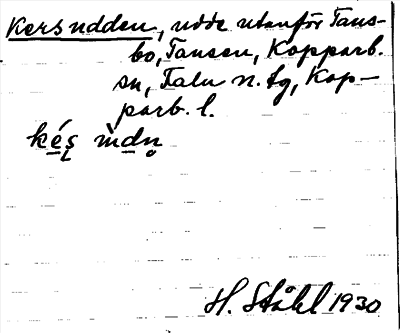 Kersudden, udde utanför Tans-
bo, Tansen, Kopparb.
sn, Falu n. tg, Kop-
parb. l.
H. Ståhl 1930